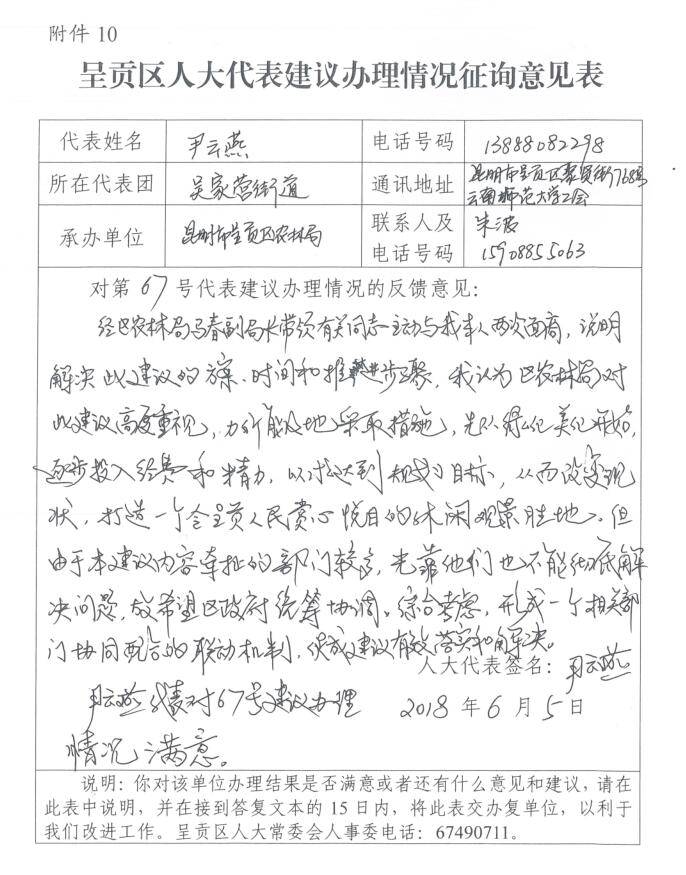 附件 10
呈贡区人大代表建议办理情况征询意见表
代表姓名 尹云燕 电话号码 13888082298
所在代表团 吴家营街道 通讯地址 昆明市呈贡区聚贤街768号
云南师范大学工会
承办单位 昆明市呈贡区农林局 联系人及 朱波
电话号码 15908855063
对第 67 号代表建议办理情况的反馈意见：
经区农林局马春副局长带领有关同志主动与我本人两次面商，说明
解决此建议的方案、时间和推进步骤，我认为区农林局对
此建议高度重视，力所能及地采取措施，先从绿化美化开始，
逐步投入经费和精力，以求达到规划目标，从而改变现
状，打造一个令呈贡人民赏心悦目的休闲观景胜地。但
由于本建议内容牵扯的部门较多，光靠他们也不能彻底解
决问题，故希望区政府统筹协调。综合考虑，形成一个相关部
门协同配合的联动机制，促成建议有效落实和解决。
人大代表签名：尹云燕
尹云燕代表对67号建议办理 2018 年 6 月 5 日
情况满意。
说明：你对该单位办理结果是否满意或者还有什么意见和建议，请在
此表中说明，并在接到答复文本的 15 日内，将此表交办复单位，以利于
我们改进工作。呈贡区人大常委会人事委电话：67490711。